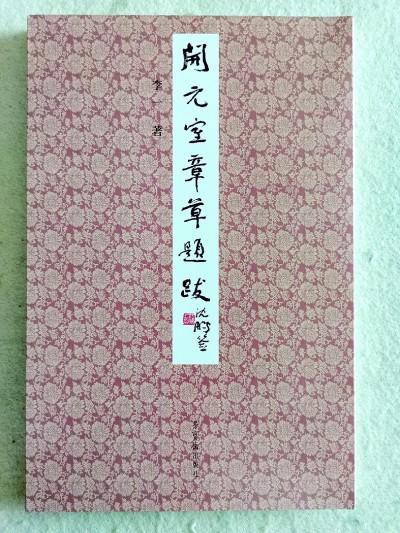 開元室章草題跋
沈鵬簽
李一 著